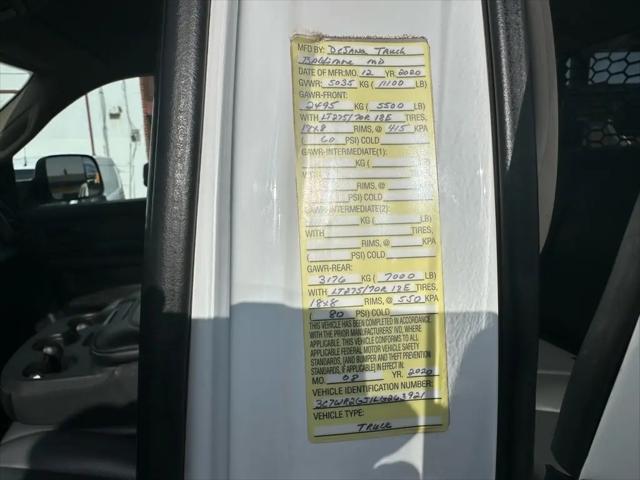 MFD BY: DeJana Truck
Baltimore MD
DATE OF MFR: MO. 12 YR. 2020
GVWR: 5035 KG ( 11100 LB)
GAWR-FRONT:
2495 KG ( 5500 LB)
WITH LT275/70R 18E TIRES,
18x8 RIMS, @ 415 KPA
( 60 PSI) COLD
GAWR-INTERMEDIATE(1):
KG ( LB)
WITH TIRES,
RIMS, @ KPA
( PSI) COLD
GAWR-INTERMEDIATE(2):
KG ( LB)
WITH TIRES,
RIMS, @ KPA
( PSI) COLD
GAWR-REAR:
3176 KG ( 7000 LB)
WITH LT275/70R 18E TIRES,
18x8 RIMS, @ 550 KPA
( 80 PSI) COLD
THIS VEHICLE HAS BEEN COMPLETED IN ACCORDANCE
WITH THE PRIOR MANUFACTURERS' IVD, WHERE
APPLICABLE. THIS VEHICLE CONFORMS TO ALL
APPLICABLE FEDERAL MOTOR VEHICLE SAFETY
STANDARDS, (AND BUMPER AND THEFT PREVENTION
STANDARDS, IF APPLICABLE) IN EFFECT IN:
MO. 08 YR. 2020
VEHICLE IDENTIFICATION NUMBER:
VEHICLE TYPE:
TRUCK